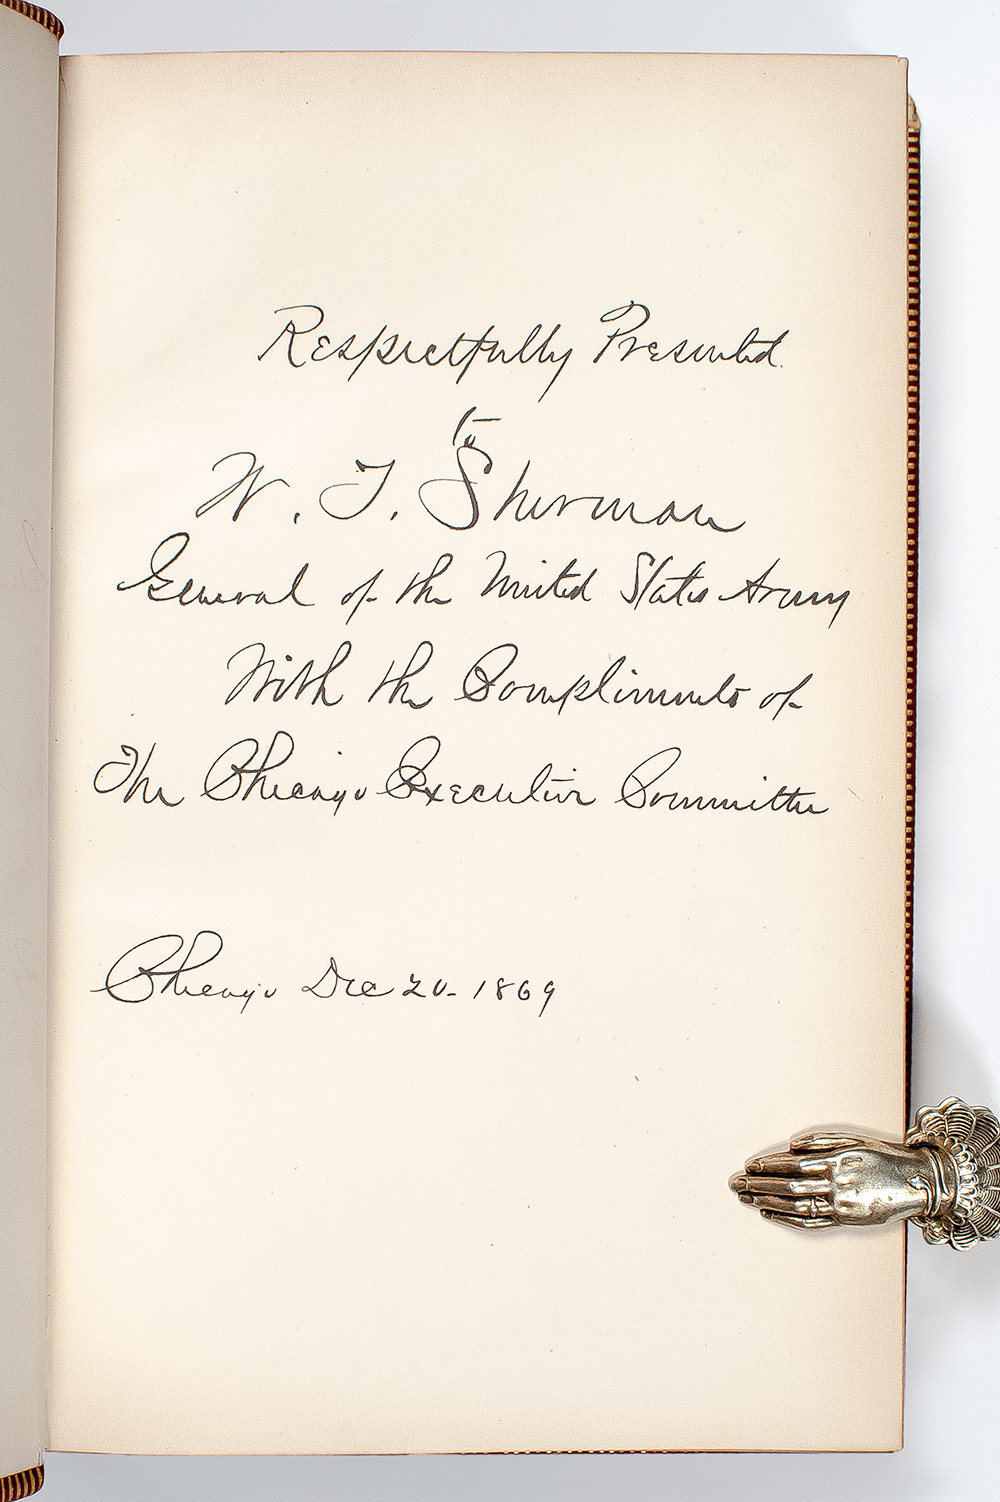 Respectfully Presented
to
W. T. Sherman
General of the United States Army
With the Compliments of
The Chicago Executive Committee
Chicago Dec 20 - 1869